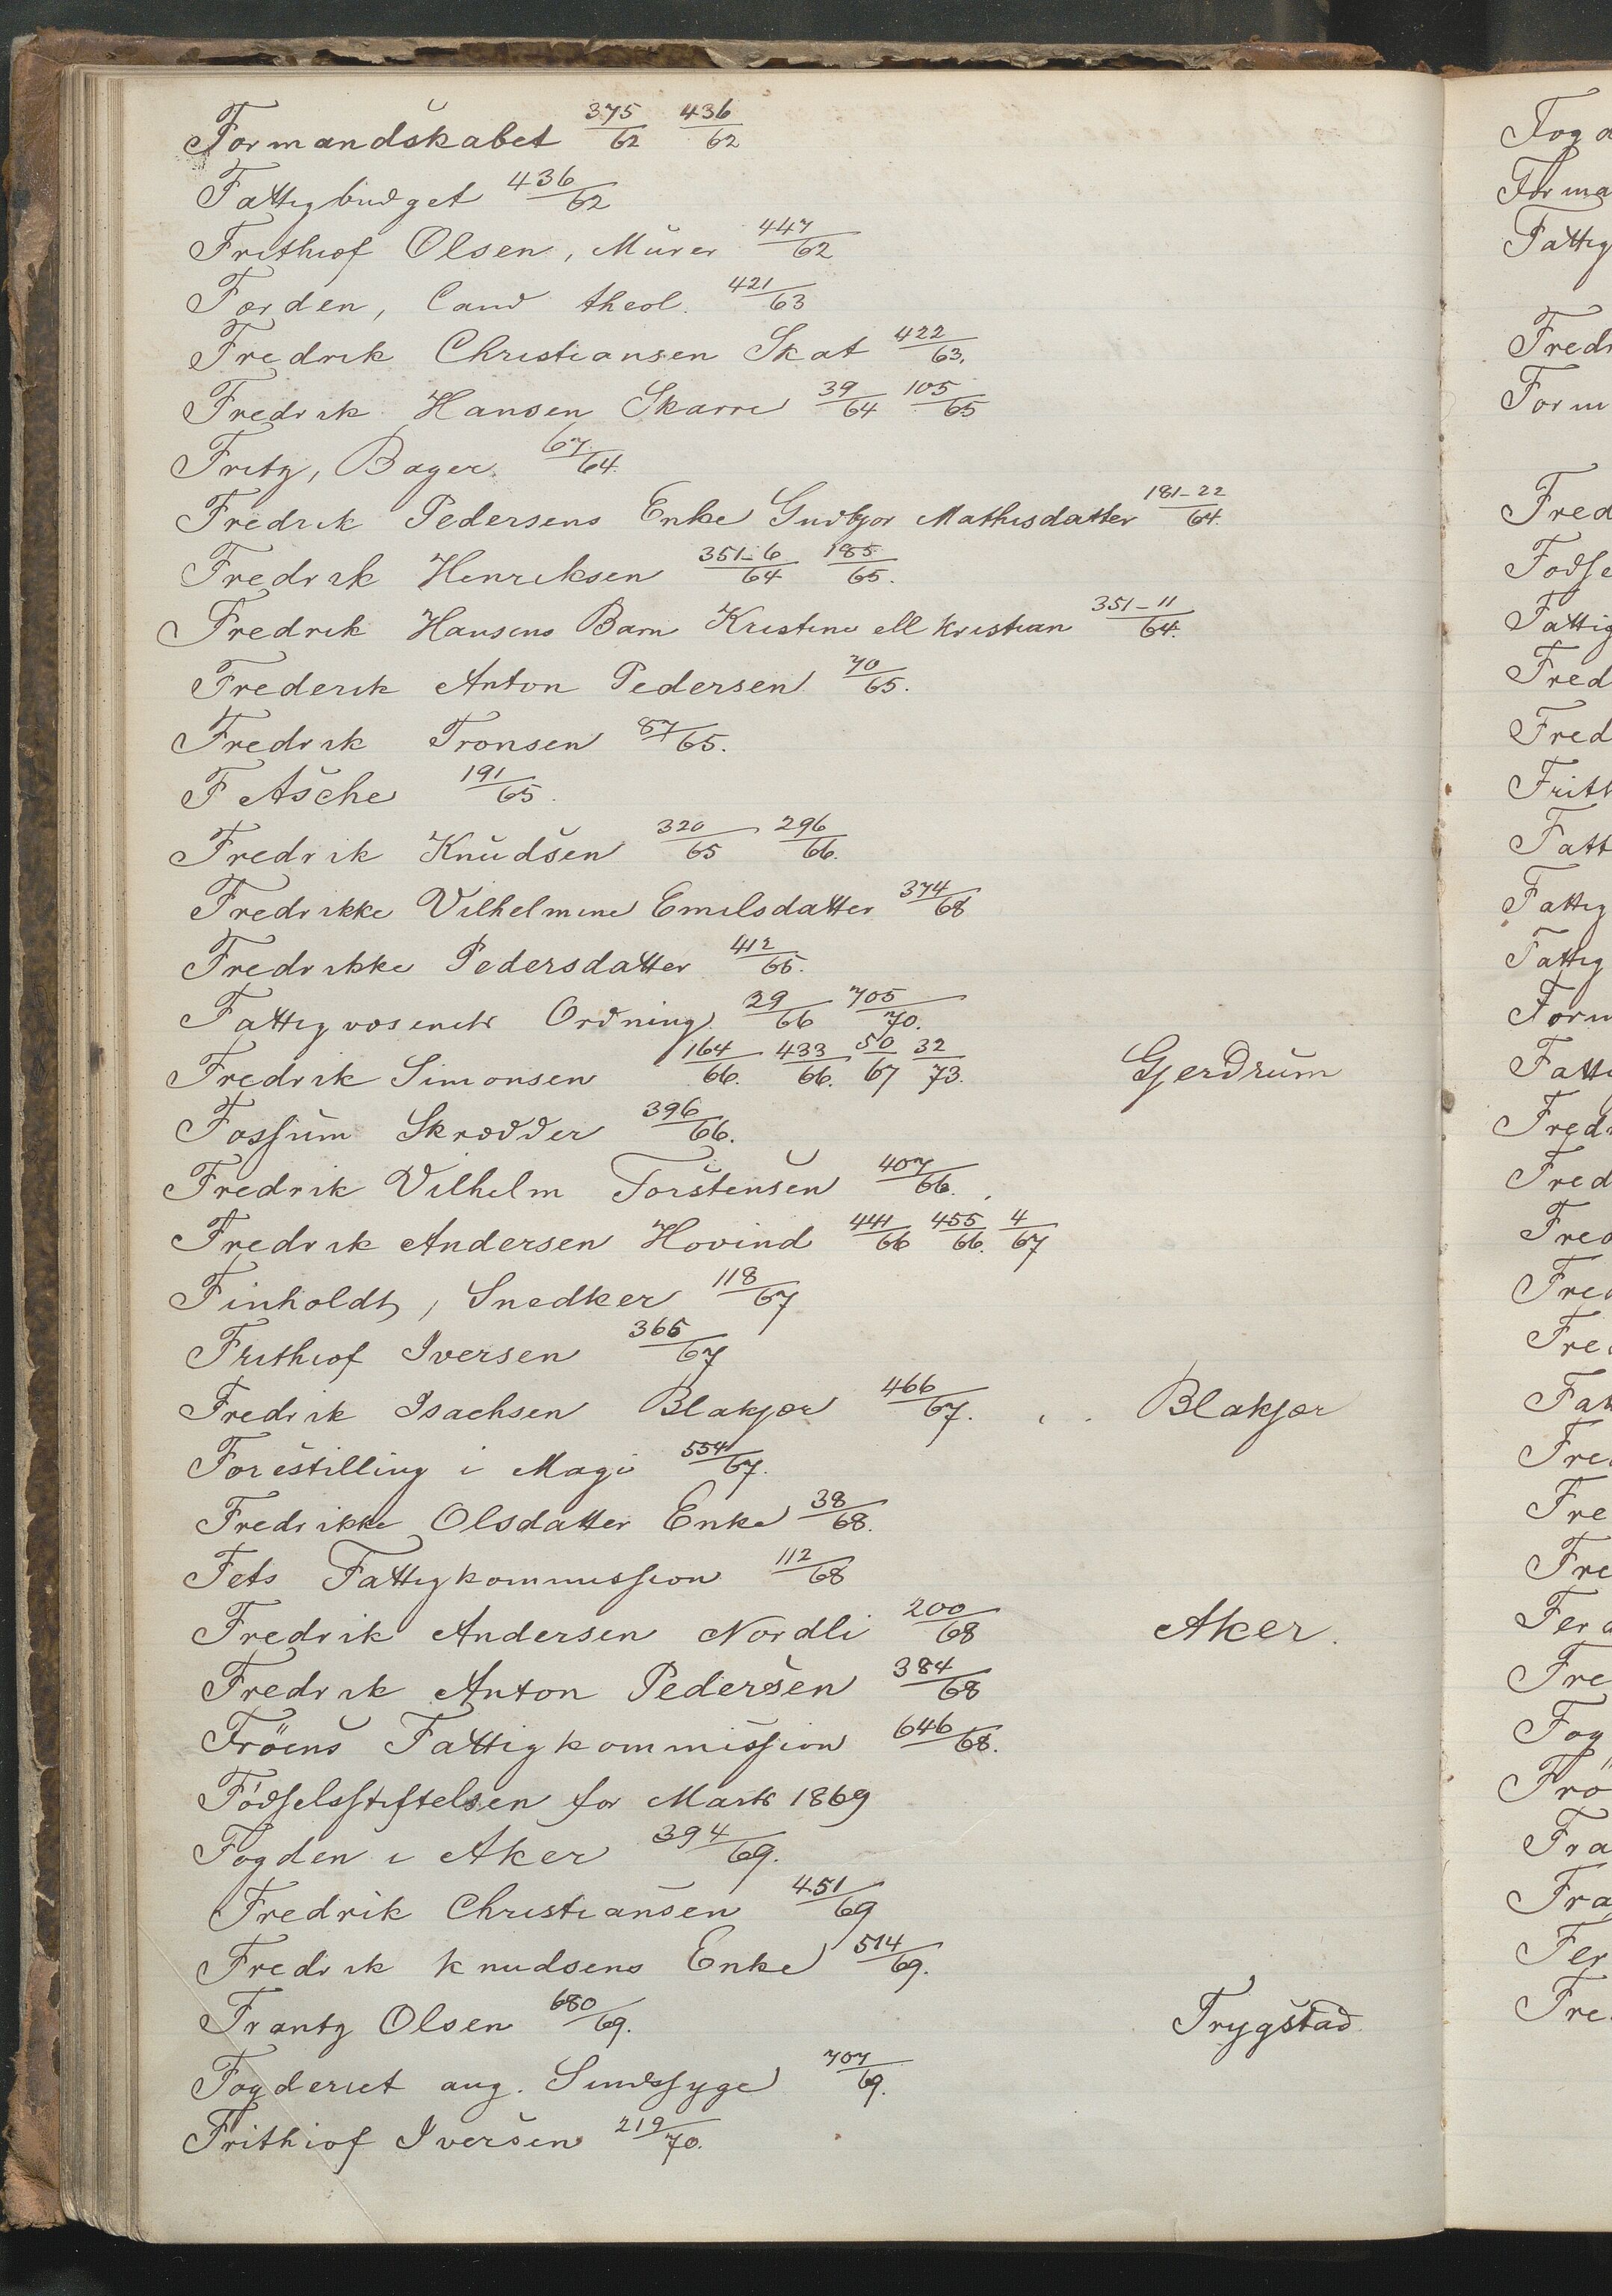 Formandskabet 375/62 436/62
Fattigbudget 436/62
Frithiof Olsen, Murer 447/62
Førden, Cand theol. 421/63
Fredrik Christiansen Skat 422/63.
Fredrik Hansen Skarre 39/64 105/65
Fritz, Bager. 67/64.
Fredrik Pedersens Enke Gudbjor Mathisdatter 181-22/64.
Fredrik Henriksen 351-6/64 185/65.
Fredrik Hansens Barn Kristine ell Kristian 351-11/64.
Frederik Anton Pedersen 70/65.
Fredrik Tronsen 87/65.
F Asche 191/65.
Fredrik Knudsen 320/65 296/66.
Fredrikke Vilhelmine Emilsdatter 374/68
Fredrikke Pedersdatter 412/65.
Fattigvæsenets Ordning 29/66 705/70.
Fredrik Simonsen 164/66. 433/66. 50/67 32/73. Gjerdrum
Fossum Skrædder 396/66.
Fredrik Vilhelm Torstensen 407/66.
Fredrik Andersen Hovind 441/66 455/66. 4/67
Finholdt, Snedker 118/67
Frithiof Iversen 365/67
Fredrik Isachsen Blakjær 466/67. Blakjær
Forestilling i Magi 554/67.
Fredrikke Olsdatter Enke 38/68.
Fets Fattigkommission 112/68
Fredrik Andersen Nordli 200/68 Aker.
Fredrik Anton Pedersen 384/68
Fröens Fattigkommission 646/68.
Födselsstiftelsen for Marts 1869
Fogden i Aker 394/69.
Fredrik Christiansen 451/69
Fredrik Knudsens Enke 514/69.
Frantz Olsen 680/69. Trygstad
Fogderiet ang. Sindssyge 707/69.
Frithiof Iversen 219/70.